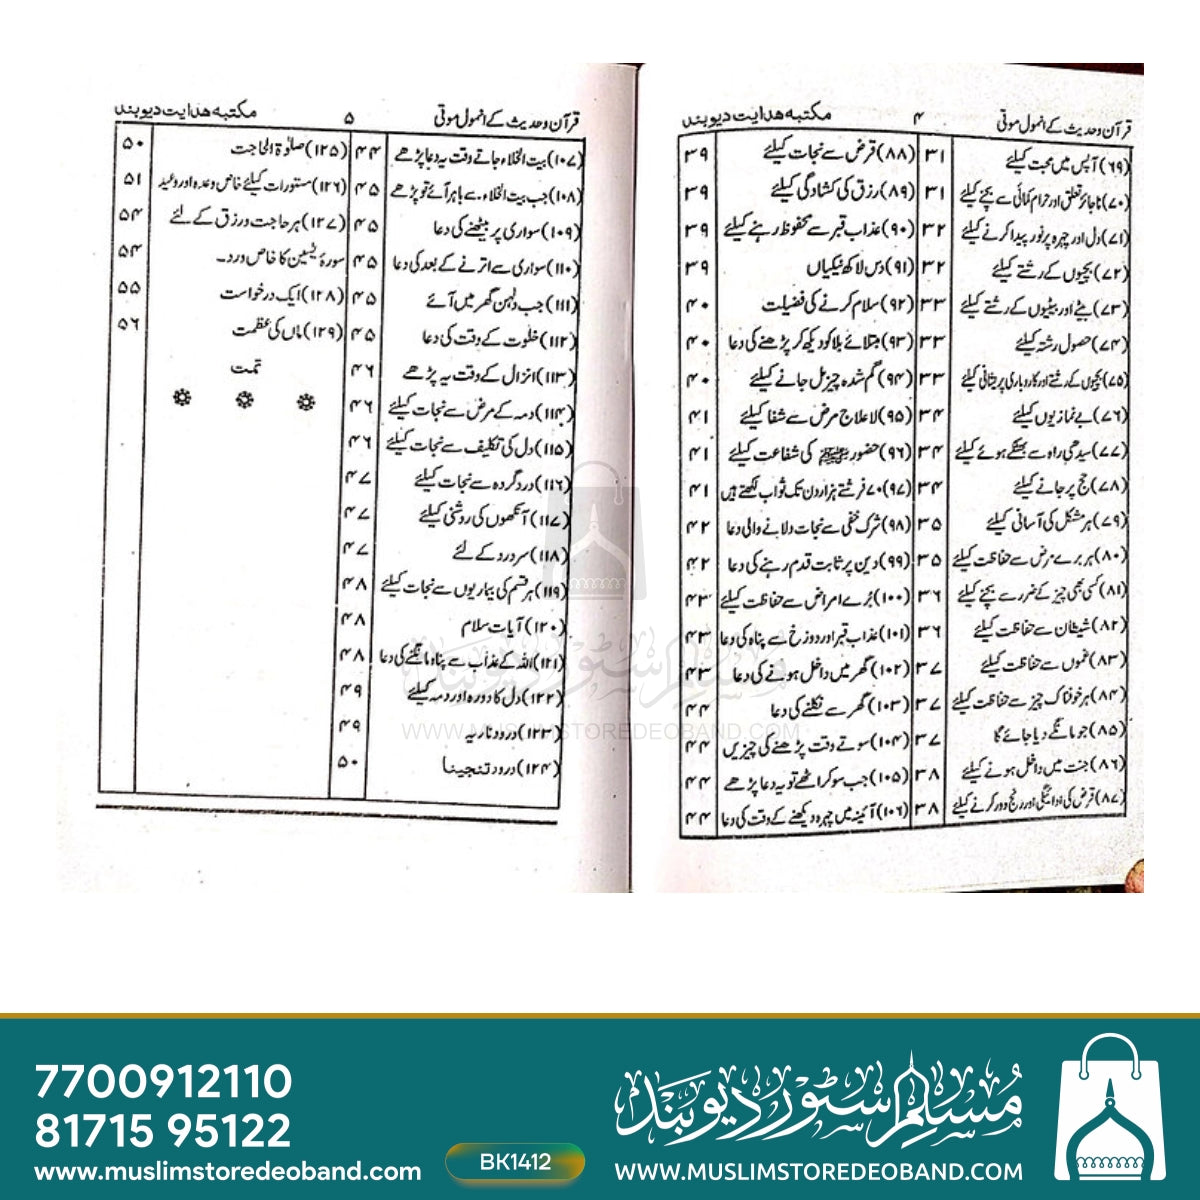 قرآن وحدیث کے انمول موتی ۴ مکتبہ ھدایت دیوبند
(۶۹) آپس میں محبت کیلئے ۳۱
(۷۰) ناجائز تعلق اور حرام کمائی سے بچنے کیلئے ۳۱
(۷۱) دل اور چہرہ پر نور پیدا کرنے کیلئے ۳۲
(۷۲) بچیوں کے رشتے کیلئے ۳۲
(۷۳) بیٹے اور بیٹیوں کے رشتے کیلئے ۳۳
(۷۴) حصول رشتہ کیلئے ۳۳
(۷۵) بچیوں کے رشتے اور کاروباری پریشانی کیلئے ۳۳
(۷۶) بے نمازیوں کیلئے ۳۴
(۷۷) سیدھی راہ سے بھٹکے ہوئے کیلئے ۳۴
(۷۸) حج پر جانے کیلئے ۳۴
(۷۹) ہر مشکل کی آسانی کیلئے ۳۵
(۸۰) ہر برے مرض سے حفاظت کیلئے ۳۵
(۸۱) کسی بھی چیز کے ضرر سے بچنے کیلئے ۳۶
(۸۲) شیطان سے حفاظت کیلئے ۳۶
(۸۳) غموں سے حفاظت کیلئے ۳۷
(۸۴) ہر خوفناک چیز سے حفاظت کیلئے ۳۷
(۸۵) جو مانگے دیا جائے گا ۳۷
(۸۶) جنت میں داخل ہونے کیلئے ۳۸
(۸۷) قرض کی ادائیگی اور رنج دور کرنے کیلئے ۳۸
(۸۸) قرض سے نجات کیلئے ۳۹
(۸۹) رزق کی کشادگی کیلئے ۳۹
(۹۰) عذاب قبر سے محفوظ رہنے کیلئے ۳۹
(۹۱) دس لاکھ نیکیاں ۳۹
(۹۲) سلام کرنے کی فضیلت ۴۰
(۹۳) مبتلائے بلا کو دیکھ کر پڑھنے کی دعا ۴۰
(۹۴) گم شدہ چیز مل جانے کیلئے ۴۰
(۹۵) لا علاج مرض سے شفا کیلئے ۴۱
(۹۶) حضور ﷺ کی شفاعت کیلئے ۴۱
(۹۷) ۷۰ فرشتے ہزار دن تک ثواب لکھتے ہیں ۴۱
(۹۸) شرک خفی سے نجات دلانے والی دعا ۴۲
(۹۹) دین پر ثابت قدم رہنے کی دعا ۴۲
(۱۰۰) بُرے امراض سے حفاظت کیلئے ۴۳
(۱۰۱) عذاب قبر اور دوزخ سے پناہ کی دعا ۴۳
(۱۰۲) گھر میں داخل ہونے کی دعا ۴۳
(۱۰۳) گھر سے نکلنے کی دعا ۴۴
(۱۰۴) سوتے وقت پڑھنے کی چیزیں ۴۴
(۱۰۵) جب سو کر اٹھے تو یہ دعا پڑھے ۴۴
(۱۰۶) آئینہ میں چہرہ دیکھنے کے وقت کی دعا ۴۴
قرآن وحدیث کے انمول موتی ۵ مکتبہ ھدایت دیوبند
(۱۰۷) بیت الخلاء جاتے وقت یہ دعا پڑھے ۴۴
(۱۰۸) جب بیت الخلاء سے باہر آئے تو پڑھے ۴۵
(۱۰۹) سواری پر بیٹھنے کی دعا ۴۵
(۱۱۰) سواری سے اترنے کے بعد کی دعا ۴۵
(۱۱۱) جب دلہن گھر میں آئے ۴۵
(۱۱۲) خلوت کے وقت کی دعا ۴۵
(۱۱۳) انزال کے وقت یہ پڑھے ۴۶
(۱۱۴) دمہ کے مرض سے نجات کیلئے ۴۶
(۱۱۵) دل کی تکلیف سے نجات کیلئے ۴۶
(۱۱۶) درد گردہ سے نجات کیلئے ۴۷
(۱۱۷) آنکھوں کی روشنی کیلئے ۴۷
(۱۱۸) سر درد کے لئے ۴۷
(۱۱۹) ہر قسم کی بیماریوں سے نجات کیلئے ۴۸
(۱۲۰) آیات سلام ۴۸
(۱۲۱) اللہ کے عذاب سے پناہ مانگنے کی دعا ۴۸
(۱۲۲) دل کا دورہ اور دمہ کیلئے ۴۹
(۱۲۳) درود ناریہ ۴۹
(۱۲۴) درود تنجینا ۵۰
(۱۲۵) صلوٰۃ الحاجت ۵۰
(۱۲۶) مستورات کیلئے خاص وعدہ اور وعید ۵۱
(۱۲۷) ہر حاجت و رزق کے لئے ۵۴
سورۂ یٰسین کا خاص ورد۔ ۵۴
(۱۲۸) ایک درخواست ۵۵
(۱۲۹) ماں کی عظمت ۵۶
تمت
مسلم سٹور دیوبند
WWW.MUSLIMSTOREDEOBAND.COM
7700912110
81715 95122
www.muslimstoredeoband.com
BK1412
مسلم سٹور دیوبند
WWW.MUSLIMSTOREDEOBAND.COM